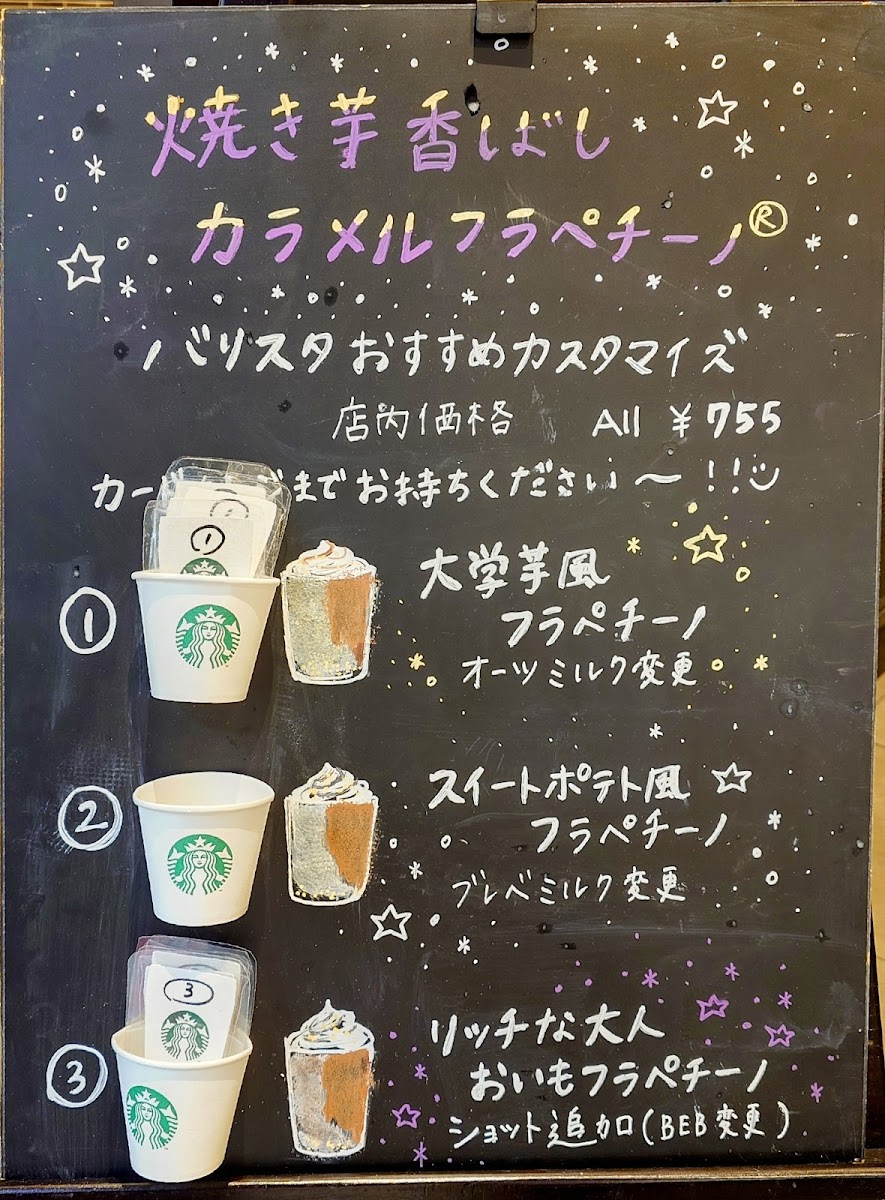 焼き芋 香ばし
カラメルフラペチーノ®
バリスタ おすすめカスタマイズ
店内価格 All ¥755
カー までお持ちください〜!!
1
① 大学芋風
フラペチーノ
オーツミルク変更
② スイートポテト風
フラペチーノ
ブレベミルク変更
3
③ リッチな大人
おいもフラペチーノ
ショット追加(BEB変更)